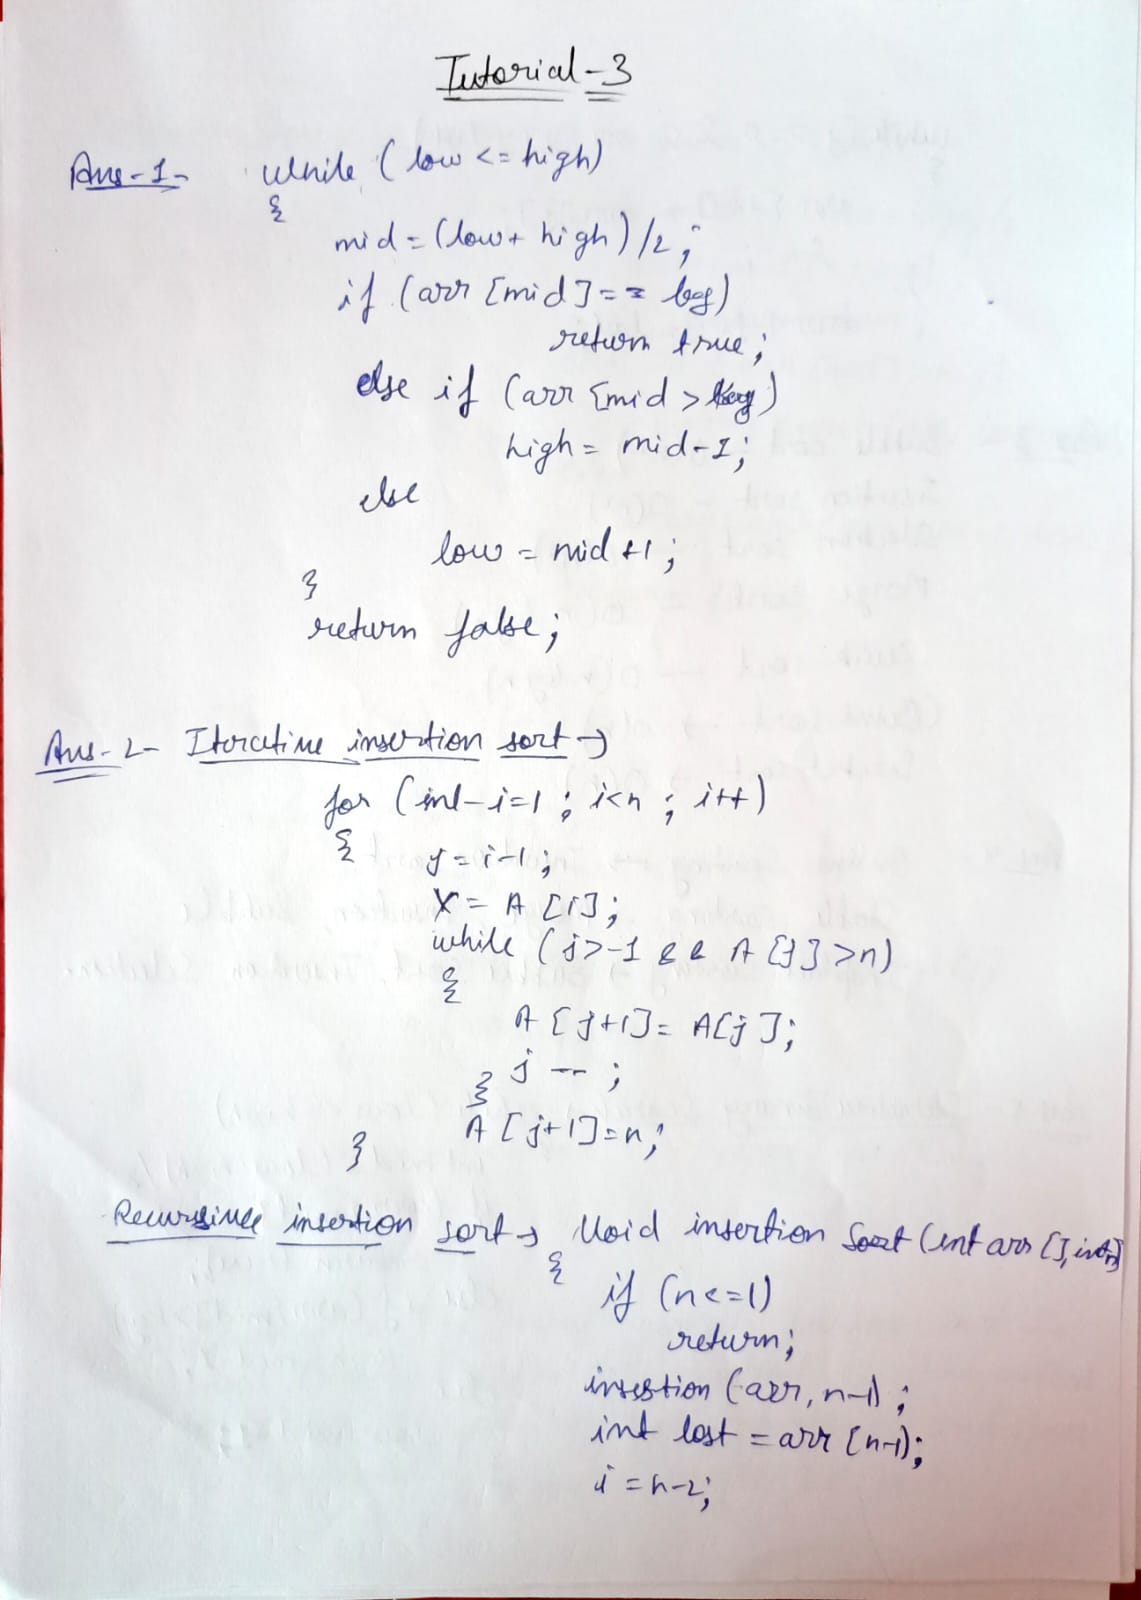 Tutorial-3
Ans-1- while (low <= high)
{
mid = (low + high)/2;
if (arr [mid] == key)
return true;
else if (arr [mid > key)
high = mid-1;
else
low = mid+1;
}
return false;
Ans-2- Iterative insertion sort →
for (int i=1; i<n; i++)
{ j = i-1;
x = A [i];
while (j>-1 && A [j] >n)
{
A [j+1] = A[j];
j--;
}
A [j+1]=n;
}
Recurssive insertion sort → Void insertion Sort (int arr [], int n)
{
if (n<=1)
return;
insertion (arr, n-1);
int last = arr [n-1);
i = n-2;